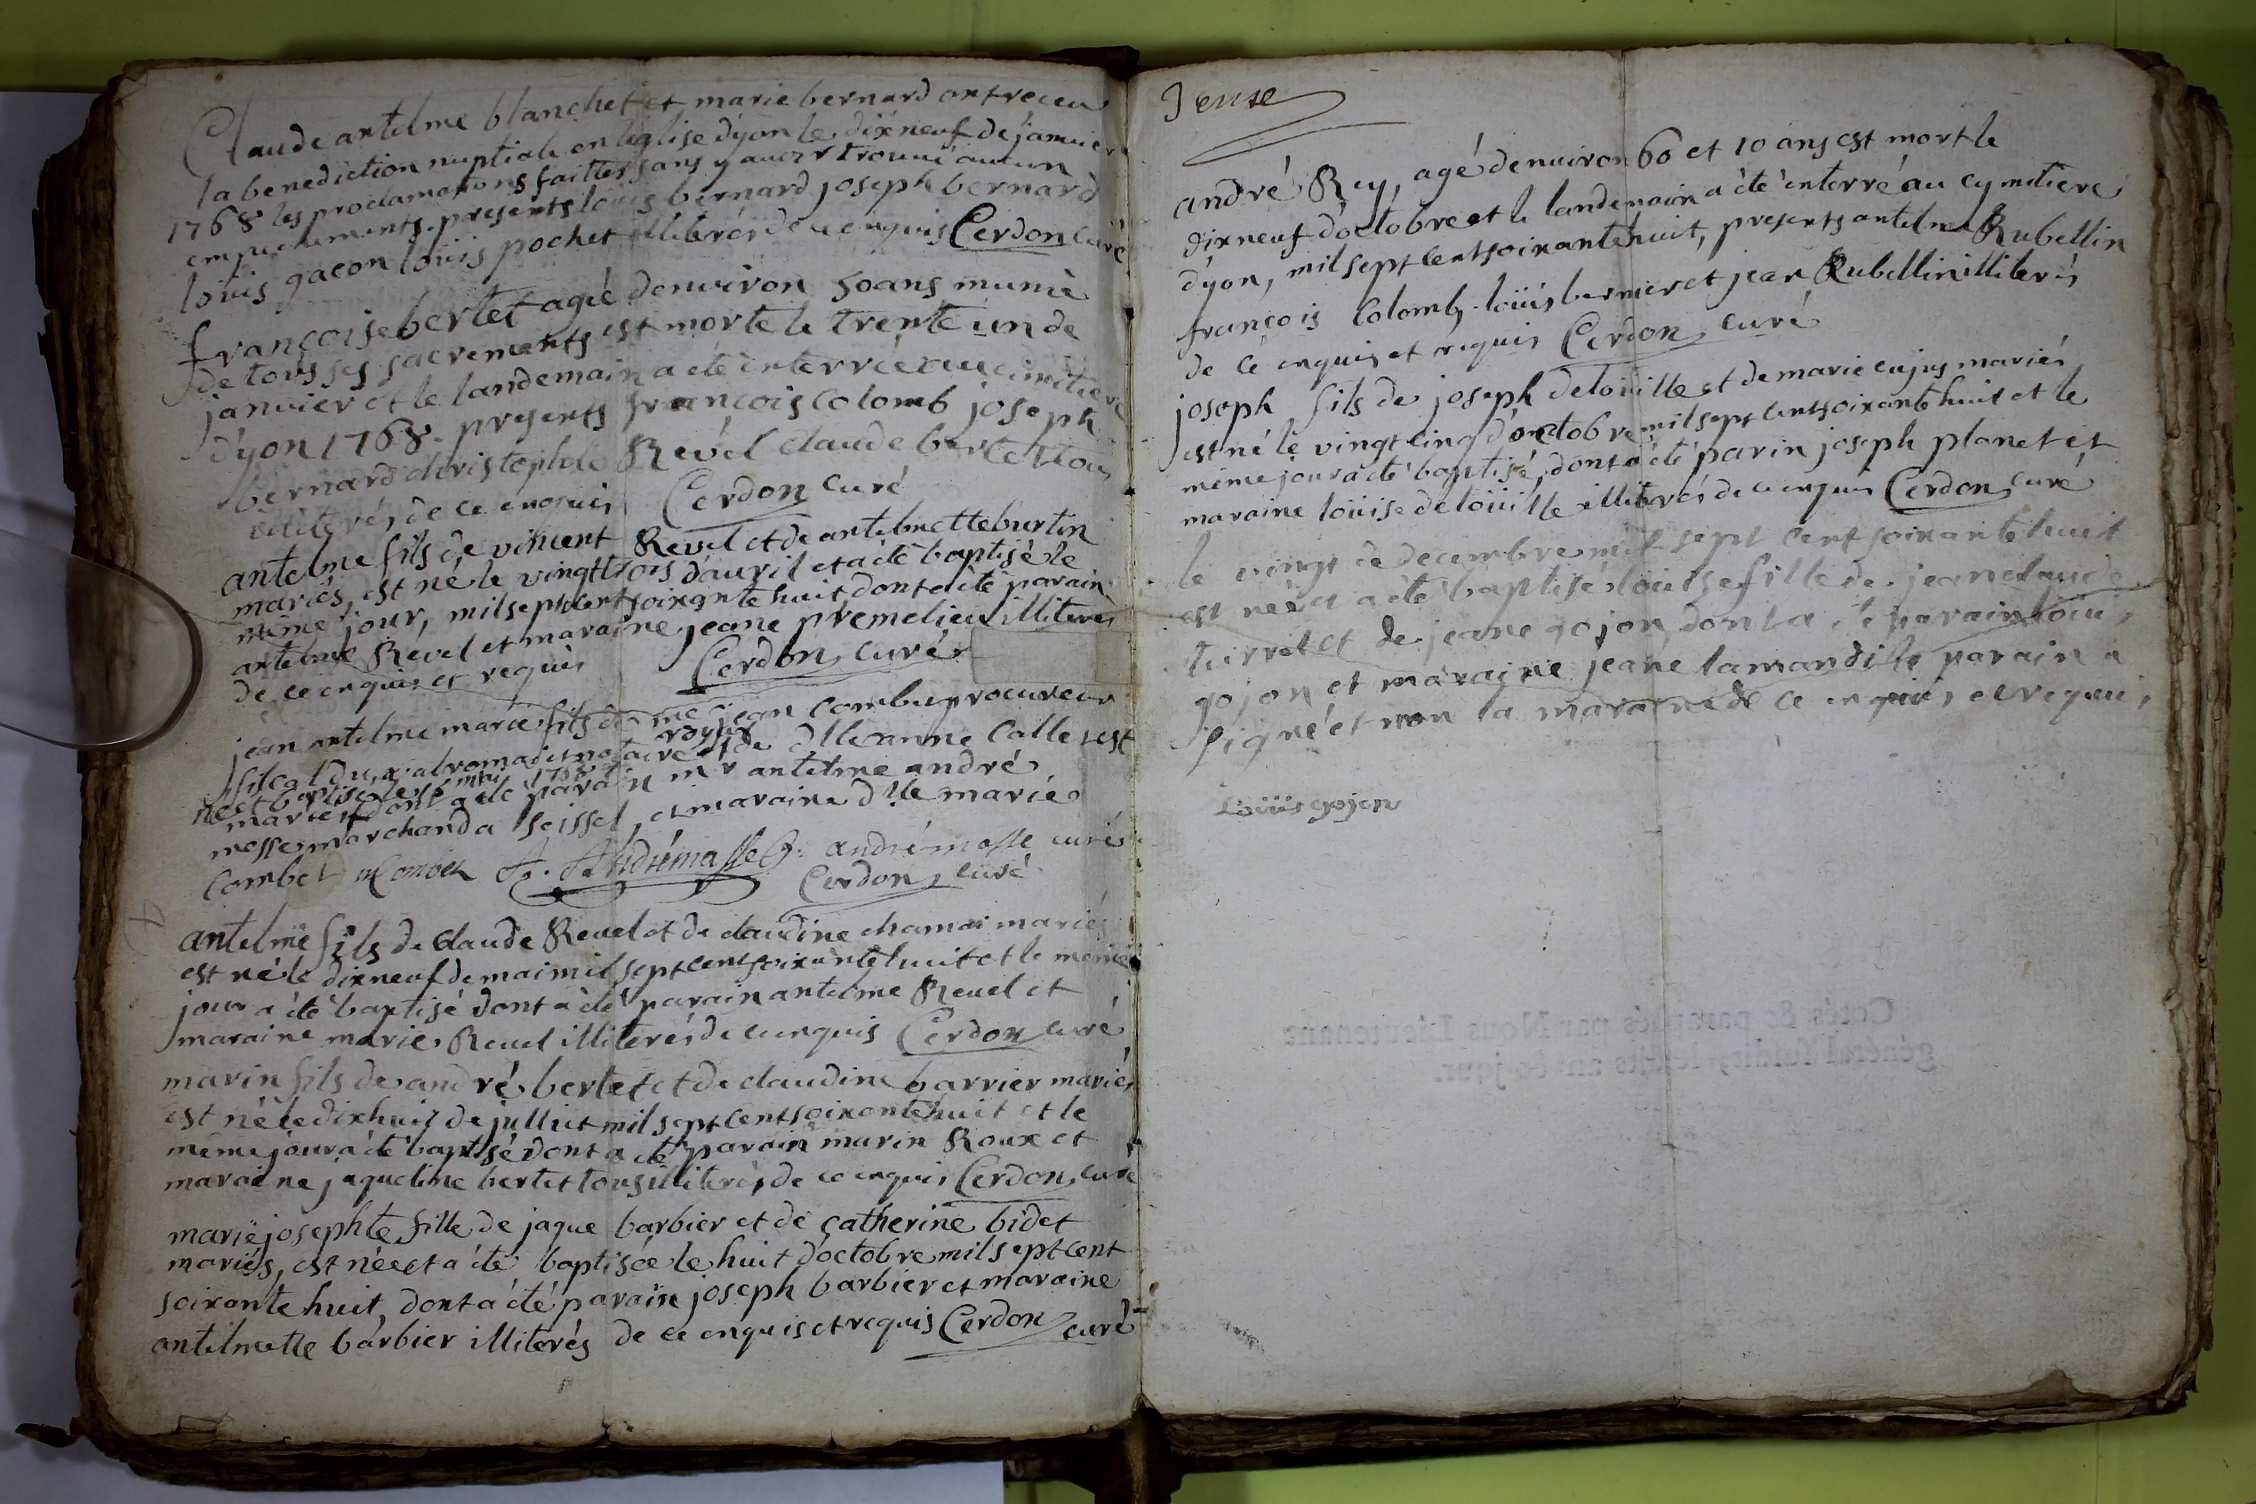 Claude antelme blanchet et marie bernard ont receu
la benediction nuptiale en l'eglise d'yon le dixneuf de janvier
1768 les proclamations faittes sans y avoir trouvé aucun
empechements. presents louis bernard joseph bernard
loüis gacon loüis pochet illiterés de ce enquis Cerdon curé
françoise bertet agée d'environ 50 ans munie
de tous ses sacrements est morte le trente un de
janvier et le landemain a été enterrée au cimitiere
d'yon 1768. presents françois Colomb joseph
bernard christophle Revel claude bertet tous
illiterés de ce enquis Cerdon curé
antelme fils de vincent Revel et de antelmette burtin
mariés, est né le vingttrois d'avril et a été baptisé le
même jour, mil sept cent soixante huit dont a été parain
antelme Revel et maraine jeane premelieu illiteres
de ce enquis et requis Cerdon curé
jean antelme marie fils de me jean combet procureur
fiscal du valromai et notaire royal et de dlle anne Callet est
né et baptisé le mai 1768
mariés dont a été parain mr antelme andré
masse marchand a seissel, et maraine dlle marie
Combet Combet A. Andrémasse andrémasse curé
Cerdon, curé
antelme fils de claude Revel et de claudine chamoi mariés
est né le dixneuf de mai mil sept cent soixante huit et le même
jour a été baptisé dont a été parain antelme Revel et
maraine marie Revel illiterés de ce enquis Cerdon curé
marin fils de andré bertet et de claudine barrier mariés
est né le dixhuit de julliet mil sept cent soixante huit et le
même jour a été baptisé dont a été parain marin Roux et
maraine jaqueline bertet tous illiterés de ce enquis Cerdon, curé
marie josephte fille de jaque barbier et de catherine bidet
mariés, est née et a été baptisée le huit d'octobre mil sept cent
soixante huit, dont a été parain joseph barbier et maraine
antelmette barbier illiterés de ce enquis et requis Cerdon curé
andré Rey, agé denviron 60 et 10 ans est mort le
dixneuf d'octobre et le landemain a été enterré au cymitiere
d'yon, mil sept cent soixante huit, presents antelme Rubellin
françois Colomb, loüis bernier et jean Rubellin illiterés
de ce enquis et requis Cerdon, curé
joseph fils de joseph delouille et de marie cujus mariés
est né le vingt cinq d'octobre mil sept cent soixante huit et le
même jour a été baptisé, dont a été parin joseph planet et
maraine loüise deloüille illiterés de ce enquis Cerdon, curé
le vingt de decembre mil sept cent soixante huit
est née et a été baptisé loüise fille de jean claude
et de jeane gojon, dont a été parain loüis
gojon et maraine jeane lamandi le parain a
signé et non la maraine de ce enquis et requis
Loüis gojon